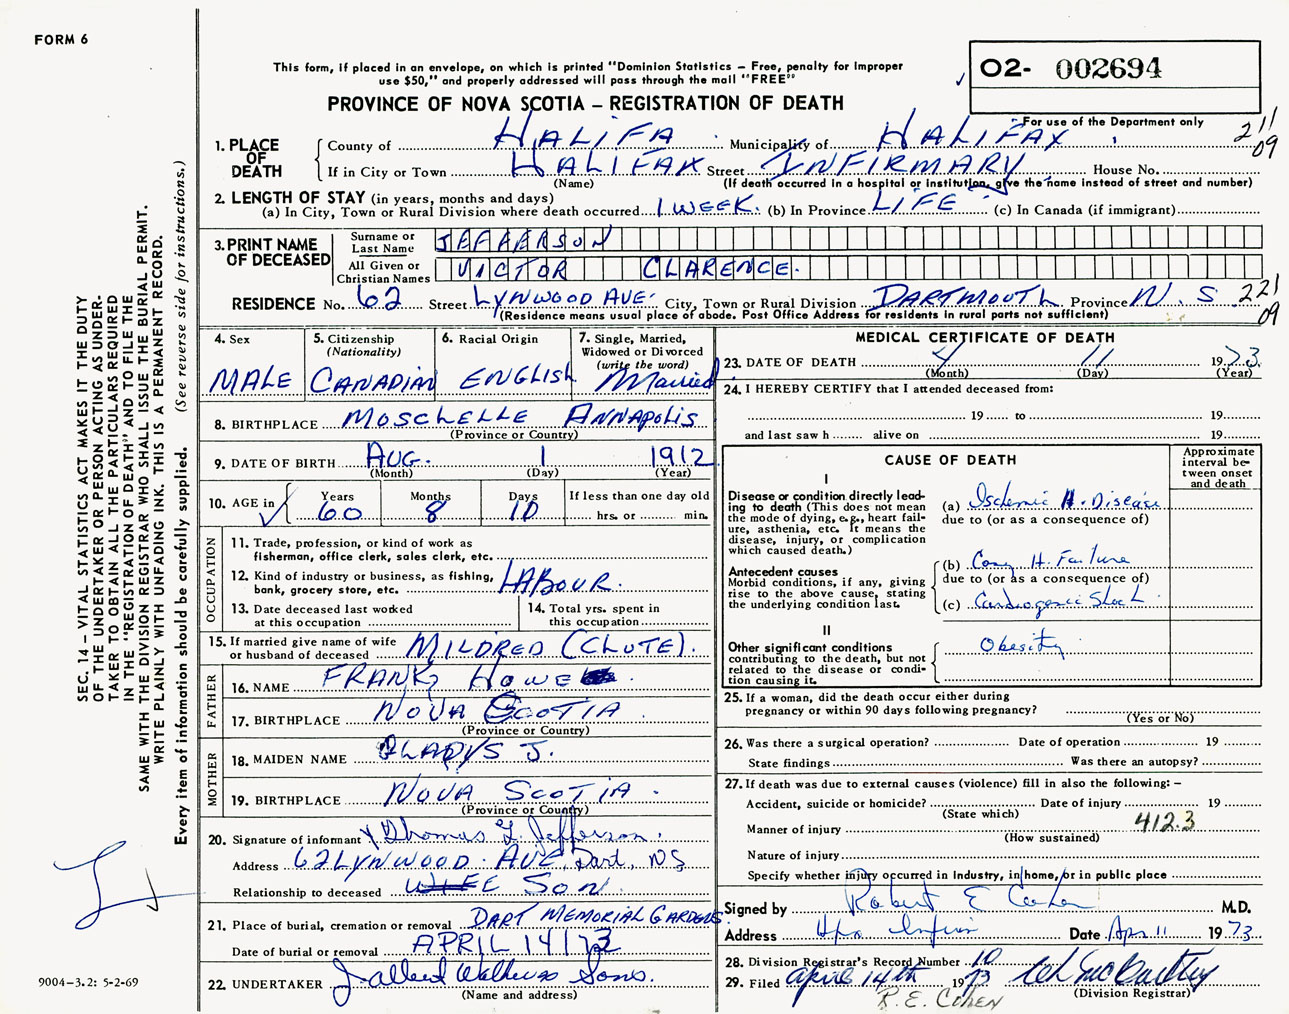 FORM 6
This form, if placed in an envelope, on which is printed "Dominion Statistics – Free, penalty for improper
use $50," and properly addressed will pass through the mail "FREE"
O2- 002694
PROVINCE OF NOVA SCOTIA – REGISTRATION OF DEATH
For use of the Department only
211
09
1. PLACE OF DEATH
County of HALIFA Municipality of HALIFAX
If in City or Town HALIFAX Street INFIRMARY House No.
(Name) (If death occurred in a hospital or institution, give the name instead of street and number)
2. LENGTH OF STAY (in years, months and days)
(a) In City, Town or Rural Division where death occurred 1 WEEK. (b) In Province LIFE (c) In Canada (if immigrant)
3. PRINT NAME OF DECEASED
Surname or Last Name JEFFERSON
All Given or Christian Names VICTOR CLARENCE.
RESIDENCE No. 62 Street LYNWOOD AVE. City, Town or Rural Division DARTMOUTH Province N.S
221
09
(Residence means usual place of abode. Post Office Address for residents in rural parts not sufficient)
4. Sex
MALE
5. Citizenship
(Nationality)
CANADIAN
6. Racial Origin
ENGLISH
7. Single, Married,
Widowed or Divorced
(write the word)
Married
8. BIRTHPLACE MOSCHELLE ANNAPOLIS
(Province or Country)
9. DATE OF BIRTH AUG. 1 1912
(Month) (Day) (Year)
10. AGE in
Years Months Days If less than one day old
60 8 10 hrs. or min.
OCCUPATION
11. Trade, profession, or kind of work as
fisherman, office clerk, sales clerk, etc.
12. Kind of industry or business, as fishing,
bank, grocery store, etc. LABOUR.
13. Date deceased last worked
at this occupation
14. Total yrs. spent in
this occupation
15. If married give name of wife
or husband of deceased MILDRED (CHUTE).
FATHER
16. NAME FRANK HOWE
17. BIRTHPLACE NOVA SCOTIA
(Province or Country)
MOTHER
18. MAIDEN NAME GLADYS J.
19. BIRTHPLACE NOVA SCOTIA.
(Province or Country)
20. Signature of informant X Thomas L. Jefferson.
Address 62 LYNWOOD AVE, Dart, NS
Relationship to deceased WIFE SON
21. Place of burial, cremation or removal DART MEMORIAL GARDENS.
Date of burial or removal APRIL 14/73
22. UNDERTAKER J. Albert Walker & Sons.
(Name and address)
MEDICAL CERTIFICATE OF DEATH
23. DATE OF DEATH 4 11 1973
(Month) (Day) (Year)
24. I HEREBY CERTIFY that I attended deceased from:
19 to 19
and last saw h alive on 19
CAUSE OF DEATH
Approximate
interval be-
tween onset
and death
I
Disease or condition directly lead-
ing to death (This does not
mean the mode of dying, e.g., heart fail-
ure, asthenia, etc. It means the
disease, injury, or complication
which caused death.)
(a) Ischemic H. Disease
due to (or as a consequence of)
Antecedent causes
Morbid conditions, if any, giving
rise to the above cause, stating
the underlying condition last.
(b) Cong H. Failure
due to (or as a consequence of)
(c) Cardiogenic Shock
II
Other significant conditions
contributing to the death, but not
related to the disease or condi-
tion causing it.
Obesity
25. If a woman, did the death occur either during
pregnancy or within 90 days following pregnancy?
(Yes or No)
26. Was there a surgical operation? Date of operation 19
State findings Was there an autopsy?
27. If death was due to external causes (violence) fill in also the following: –
Accident, suicide or homicide? Date of injury 19
(State which)
Manner of injury 412.3
(How sustained)
Nature of injury
Specify whether injury occurred in Industry, in home, or in public place
Signed by Robert E Cohen M.D.
Address Hfx Infir Date Apr 11 1973.
28. Division Registrar's Record Number 10
29. Filed April 14th 1973
(Division Registrar)
R. E. COHEN
SEC. 14 – VITAL STATISTICS ACT MAKES IT THE DUTY
OF THE UNDERTAKER OR PERSON ACTING AS UNDER-
TAKER TO OBTAIN ALL THE PARTICULARS REQUIRED
IN THE "REGISTRATION OF DEATH" AND TO FILE THE
SAME WITH THE DIVISION REGISTRAR WHO SHALL ISSUE THE BURIAL PERMIT.
WRITE PLAINLY WITH UNFADING INK. THIS IS A PERMANENT RECORD.
Every item of information should be carefully supplied. (See reverse side for instructions.)
9004-3.2: 5-2-69